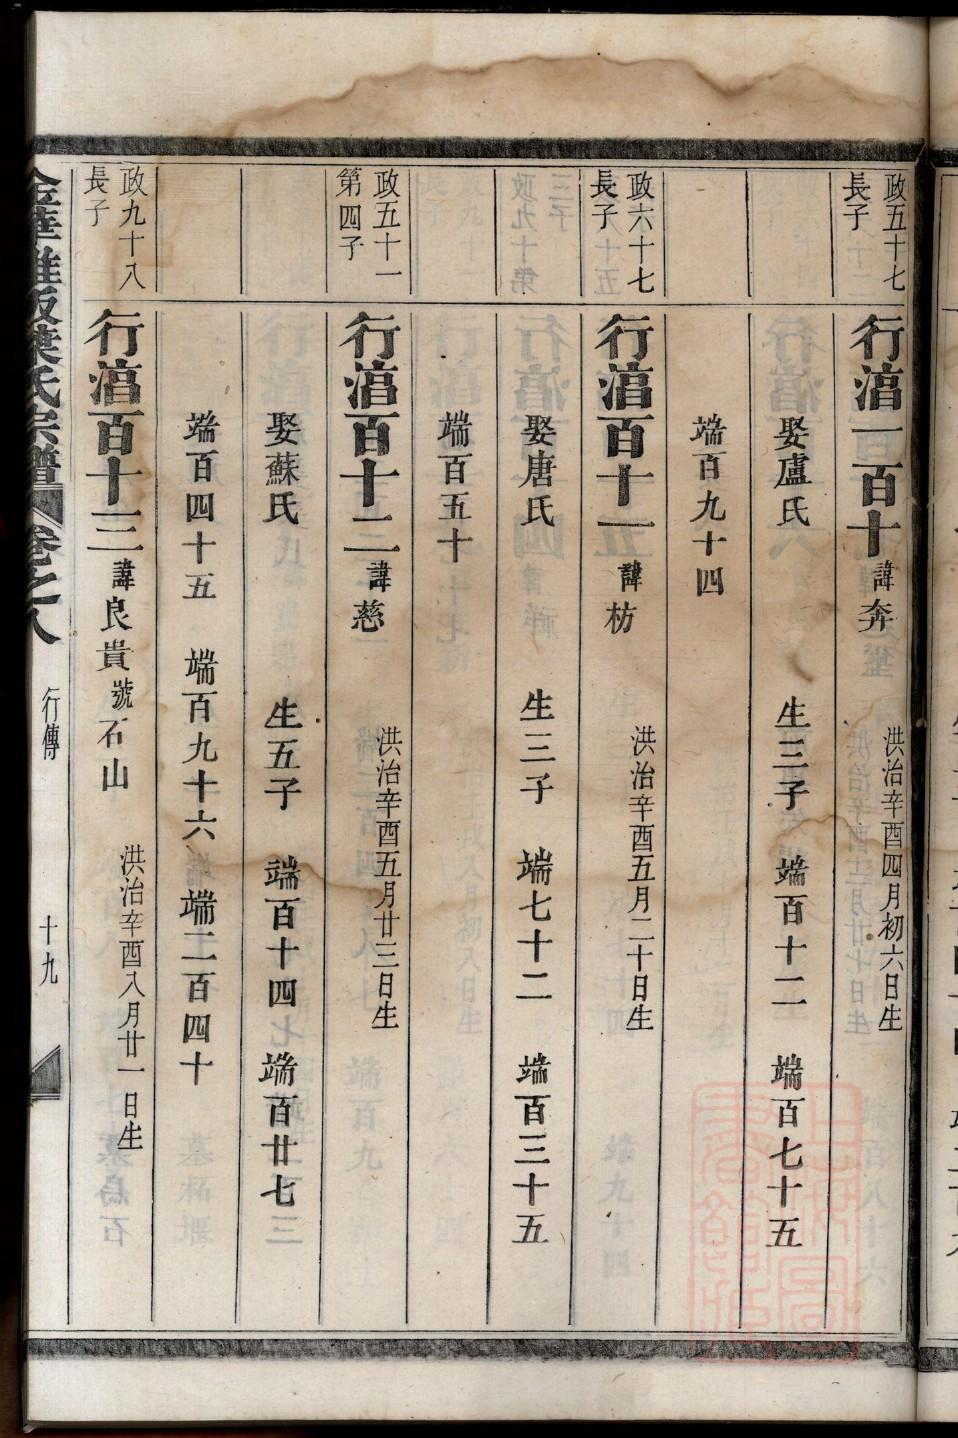 政五十七
長子
行湻一百十諱奔
洪治辛酉四月初六日生
娶盧氏 生三子 端百十二 端百七十五
端百九十四
政六十七
長子
行湻百十一諱枋
洪治辛酉五月二十日生
娶唐氏 生三子 端七十二 端百三十五
端百五十
政五十一
第四子
行湻百十二諱慈
洪治辛酉五月廿三日生
娶蘇氏 生五子 端百十四 端百廿七
端百四十五 端百九十六 端二百四十
政九十八
長子
行湻百十三諱良貴號石山
洪治辛酉八月廿一日生
葉氏宗譜 卷之八 行傳 十九